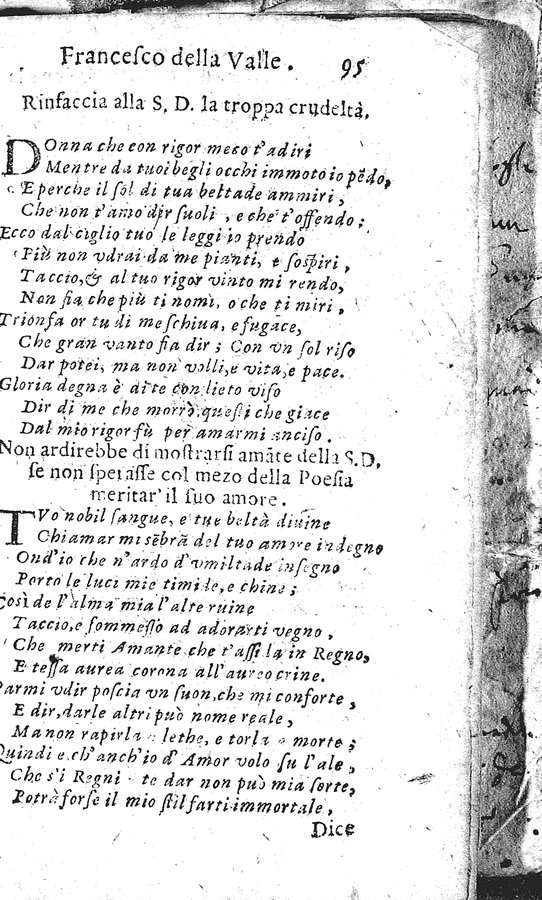 Franceſco della Valle. 95
Rinfaccia alla S. D. la troppa crudeltà.
DOnna che con rigor meco t'adiri
Mentre da tuoi begli occhi immoto io pẽdo,
E perche il ſol di tua beltade ammiri,
Che non t'amo dir ſuoli, e che t'offendo;
Ecco dal ciglio tuo le leggi io prendo
Più non vdrai da me pianti, e ſoſpiri,
Taccio, & al tuo rigor vinto mi rendo,
Non fia che più ti nomi, o che ti miri,
Trionfa or tu di me ſchiua, e fugace,
Che gran vanto fia dir; Con vn ſol riſo
Dar potei, ma non volli, e vita, e pace.
Gloria degna è di te con lieto viſo
Dir di me che morrò: queſti che giace
Dal mio rigor fù per amarmi anciſo.
Non ardirebbe di moſtrarſi amãte della S.D.
ſe non ſperaſſe col mezo della Poeſia
meritar' il ſuo amore.
TVo nobil ſangue, e tue beltà diuine
Chiamar mi sẽbrã del tuo amore indegno
Ond'io che n'ardo d'vmiltade inſegno
Porto le luci mie timide, e chine;
Così de l'alma mia l'alte ruine
Taccio, e ſommeſſo ad adorarti vegno,
Che merti Amante che t'aſſida in Regno,
E teſſa aurea corona all'aureo crine.
Parmi vdir poſcia vn ſuon, che mi conforte,
E dir, darle altri può nome reale,
Ma non rapirla a lethe, e torla a morte;
Quindi e ch'anch'io d'Amor volo ſu l'ale,
Che s'i Regni a te dar non può mia ſorte,
Potrà forſe il mio ſtil farti immortale,
Dice